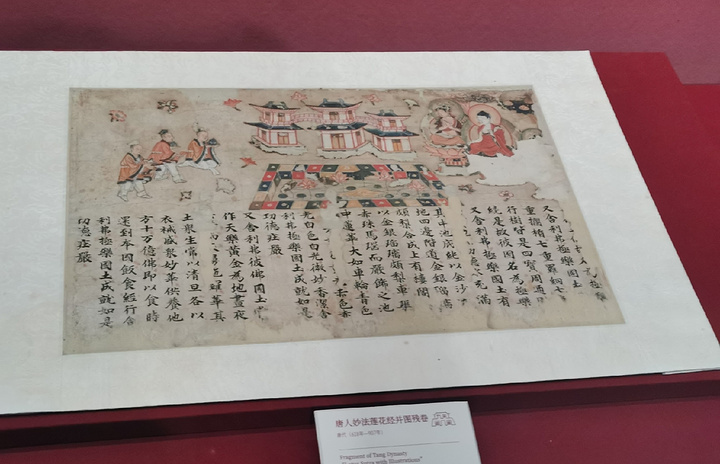 名為極
又舍利弗極樂國土
重欄楯七重羅網七
行樹皆是四寶周匝
繞是故彼國名為極樂
又舍利弗極樂國土有
充滿
其中池底純以金沙
地四邊階道金銀瑠璃
頗梨合成上有樓閣
以金銀瑠璃頗梨車磲
赤珠馬瑙而嚴飾之池
中蓮華大如車輪青色
赤色赤
光白色白光微妙香潔舍
利弗極樂國土成就如是
功德莊嚴
又舍利弗彼佛國土
作天樂黃金為地晝夜
華其
土眾生常以清旦各以
衣祴盛眾妙華供養他
方十万億佛即以食時
還到本國飯食經行舍
利弗極樂國土成就如是
功德莊嚴
唐人妙法莲花经并图残卷
唐代（618年—907年）
Fragment of Tang Dynasty
"Lotus Sutra with Illustrations"